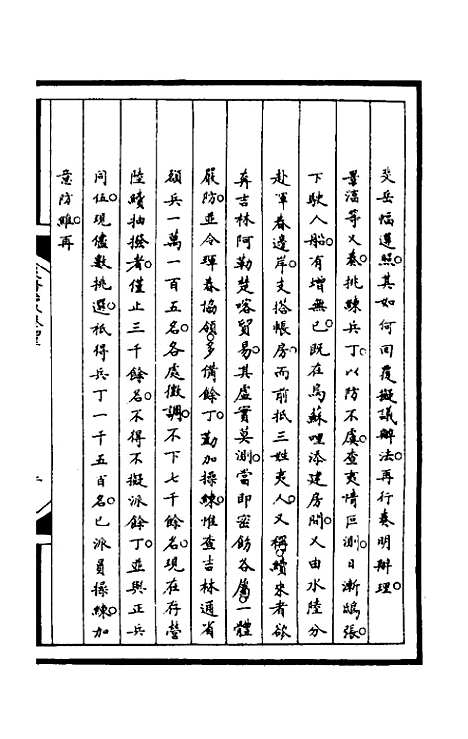 斐岳幅遵照其如何回覆擬議辦法再行奏明辦理。
景淳等又奏挑練兵丁以防不虞查夷情叵測日漸鴟張。
下駛人船有增無已既在烏蘇哩添建房間又由水陸分
赴琿春邊岸支搭帳房而前抵三姓夷人又稱續來者欲
奔吉林阿勒楚喀貿易其虛實莫測當即密飭各屬一體
嚴防並令琿春協領多備餘丁勤加操練惟查吉林通省
額兵一萬一百五名各處徵調不下七千餘名現在存營
陸續抽撥者僅止三千餘名不得不擬派餘丁並與正兵
同伍現儘數挑選祇得兵丁一千五百名已派員操練加
意防維再